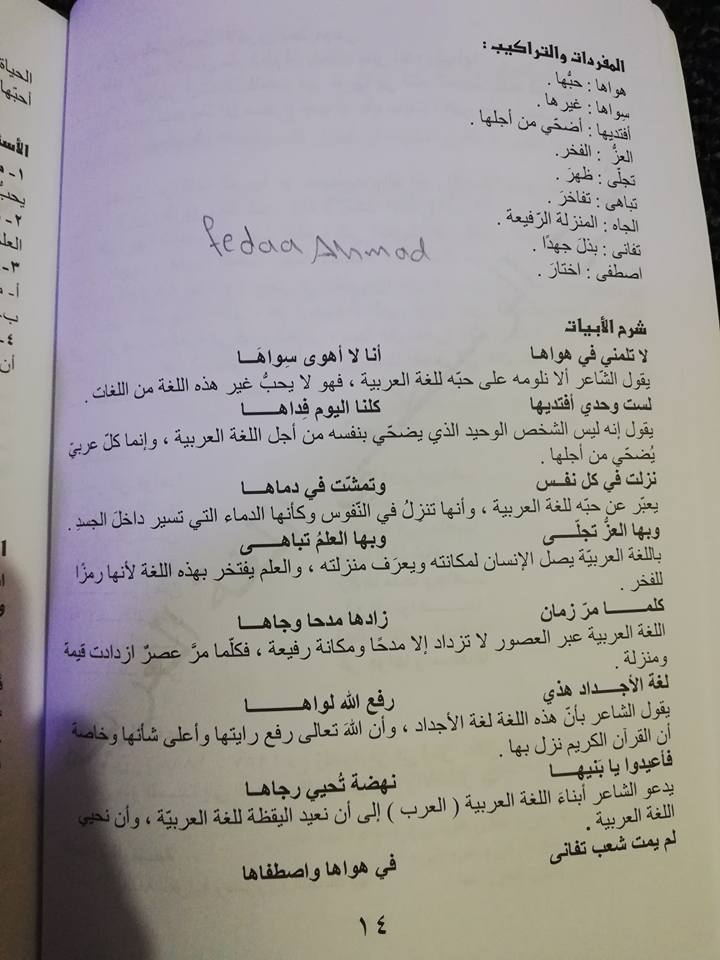 المفردات والتراكيب :
هواها : حبُّها .
سِواها : غيرها .
أفتديها : أضحّي من أجلها .
العزُّ : الفخر.
تجلّى : ظهرَ .
تباهى : تفاخرَ .
الجاه : المنزلة الرّفيعة .
تفانى : بذلَ جهدًا .
اصطفى : اختارَ .
fedaa Ahmad
شرح الأبيات
لا تلمني في هواها أنا لا أهوى سِواهَـا
يقول الشّاعر ألا نلومه على حبّه للغة العربية ، فهو لا يحبُّ غير هذه اللغة من اللغات .
لست وحدي أفتديها كلنا اليوم فِداهـــا
يقول إنه ليس الشخص الوحيد الذي يضحّي بنفسه من أجل اللغة العربية ، وإنما كلّ عربيّ
يُضحّي من أجلها .
نزلت في كل نفـس وتمشّت في دماهـــا
يعبّر عن حبّه للغة العربية ، وأنها تنزِلُ في النّفوس وكأنها الدماء التي تسير داخلَ الجسدِ .
وبها العزُّ تجلّـــى وبها العلمُ تباهـــى
باللغة العربيّة يصل الإنسان لمكانته ويعرَف منزلته ، والعلم يفتخر بهذه اللغة لأنها رمزًا
للفخر .
كلمـــــا مرّ زمان زادها مدحا وجاهـا
اللغة العربية عبر العصور لا تزداد إلا مدحًا ومكانة رفيعة ، فكلّما مرَّ عصرٌ ازدادت قيمة
ومنزلة .
لغة الأجـــداد هذي رفع الله لواهـــــا
يقول الشّاعر بأنّ هذه اللغة لغة الأجداد ، وأن اللهَ تعالى رفع رايتها وأعلى شأنها وخاصة
أن القرآن الكريم نزل بها .
فأعيدوا يا بَنيهـــا نهضة تُحيي رجاها
يدعو الشّاعر أبناءَ اللغة العربية ( العرب ) إلى أن نعيد اليقظة للغة العربيّة ، وأن نحيي
اللغة العربية .
لم يمت شعب تفانى في هواها واصطفاها
١٤
الحياة
أحبّها